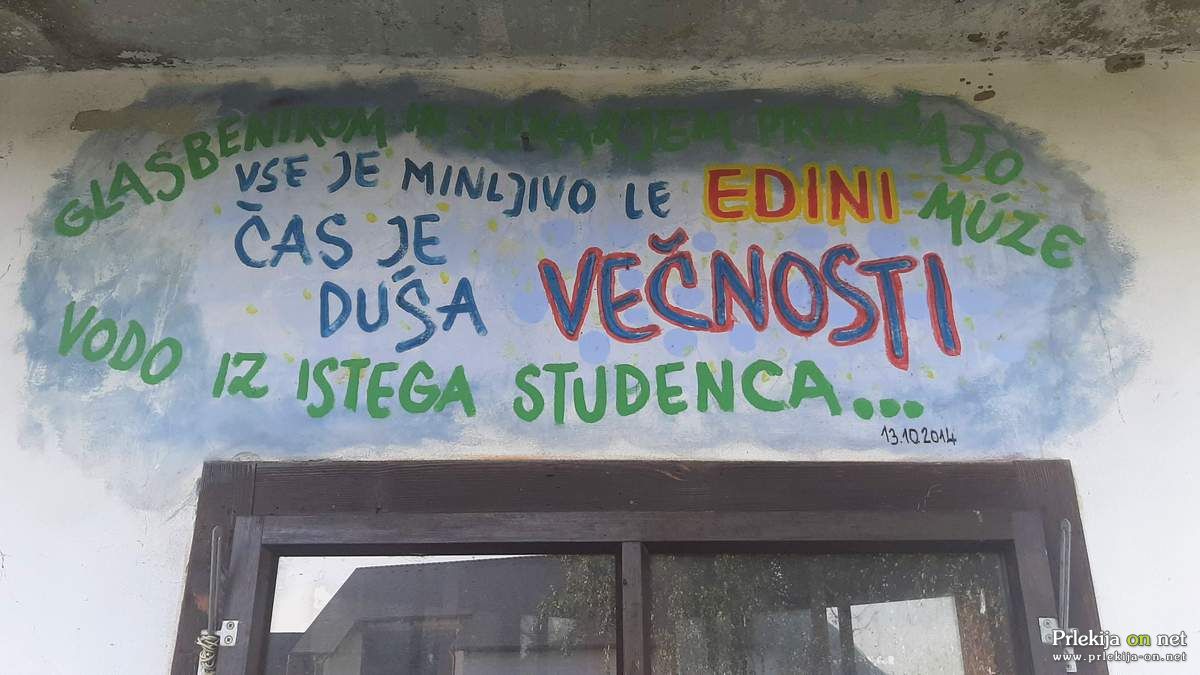 GLASBENIKOM IN SLIKARJEM PRINAŠAJO
MÚZE
VSE JE MINLJIVO LE EDINI
ČAS JE
DUŠA VEČNOSTI
VODO IZ ISTEGA STUDENCA...
13.10.2014
Prlekija on net
www.prlekija-on.net